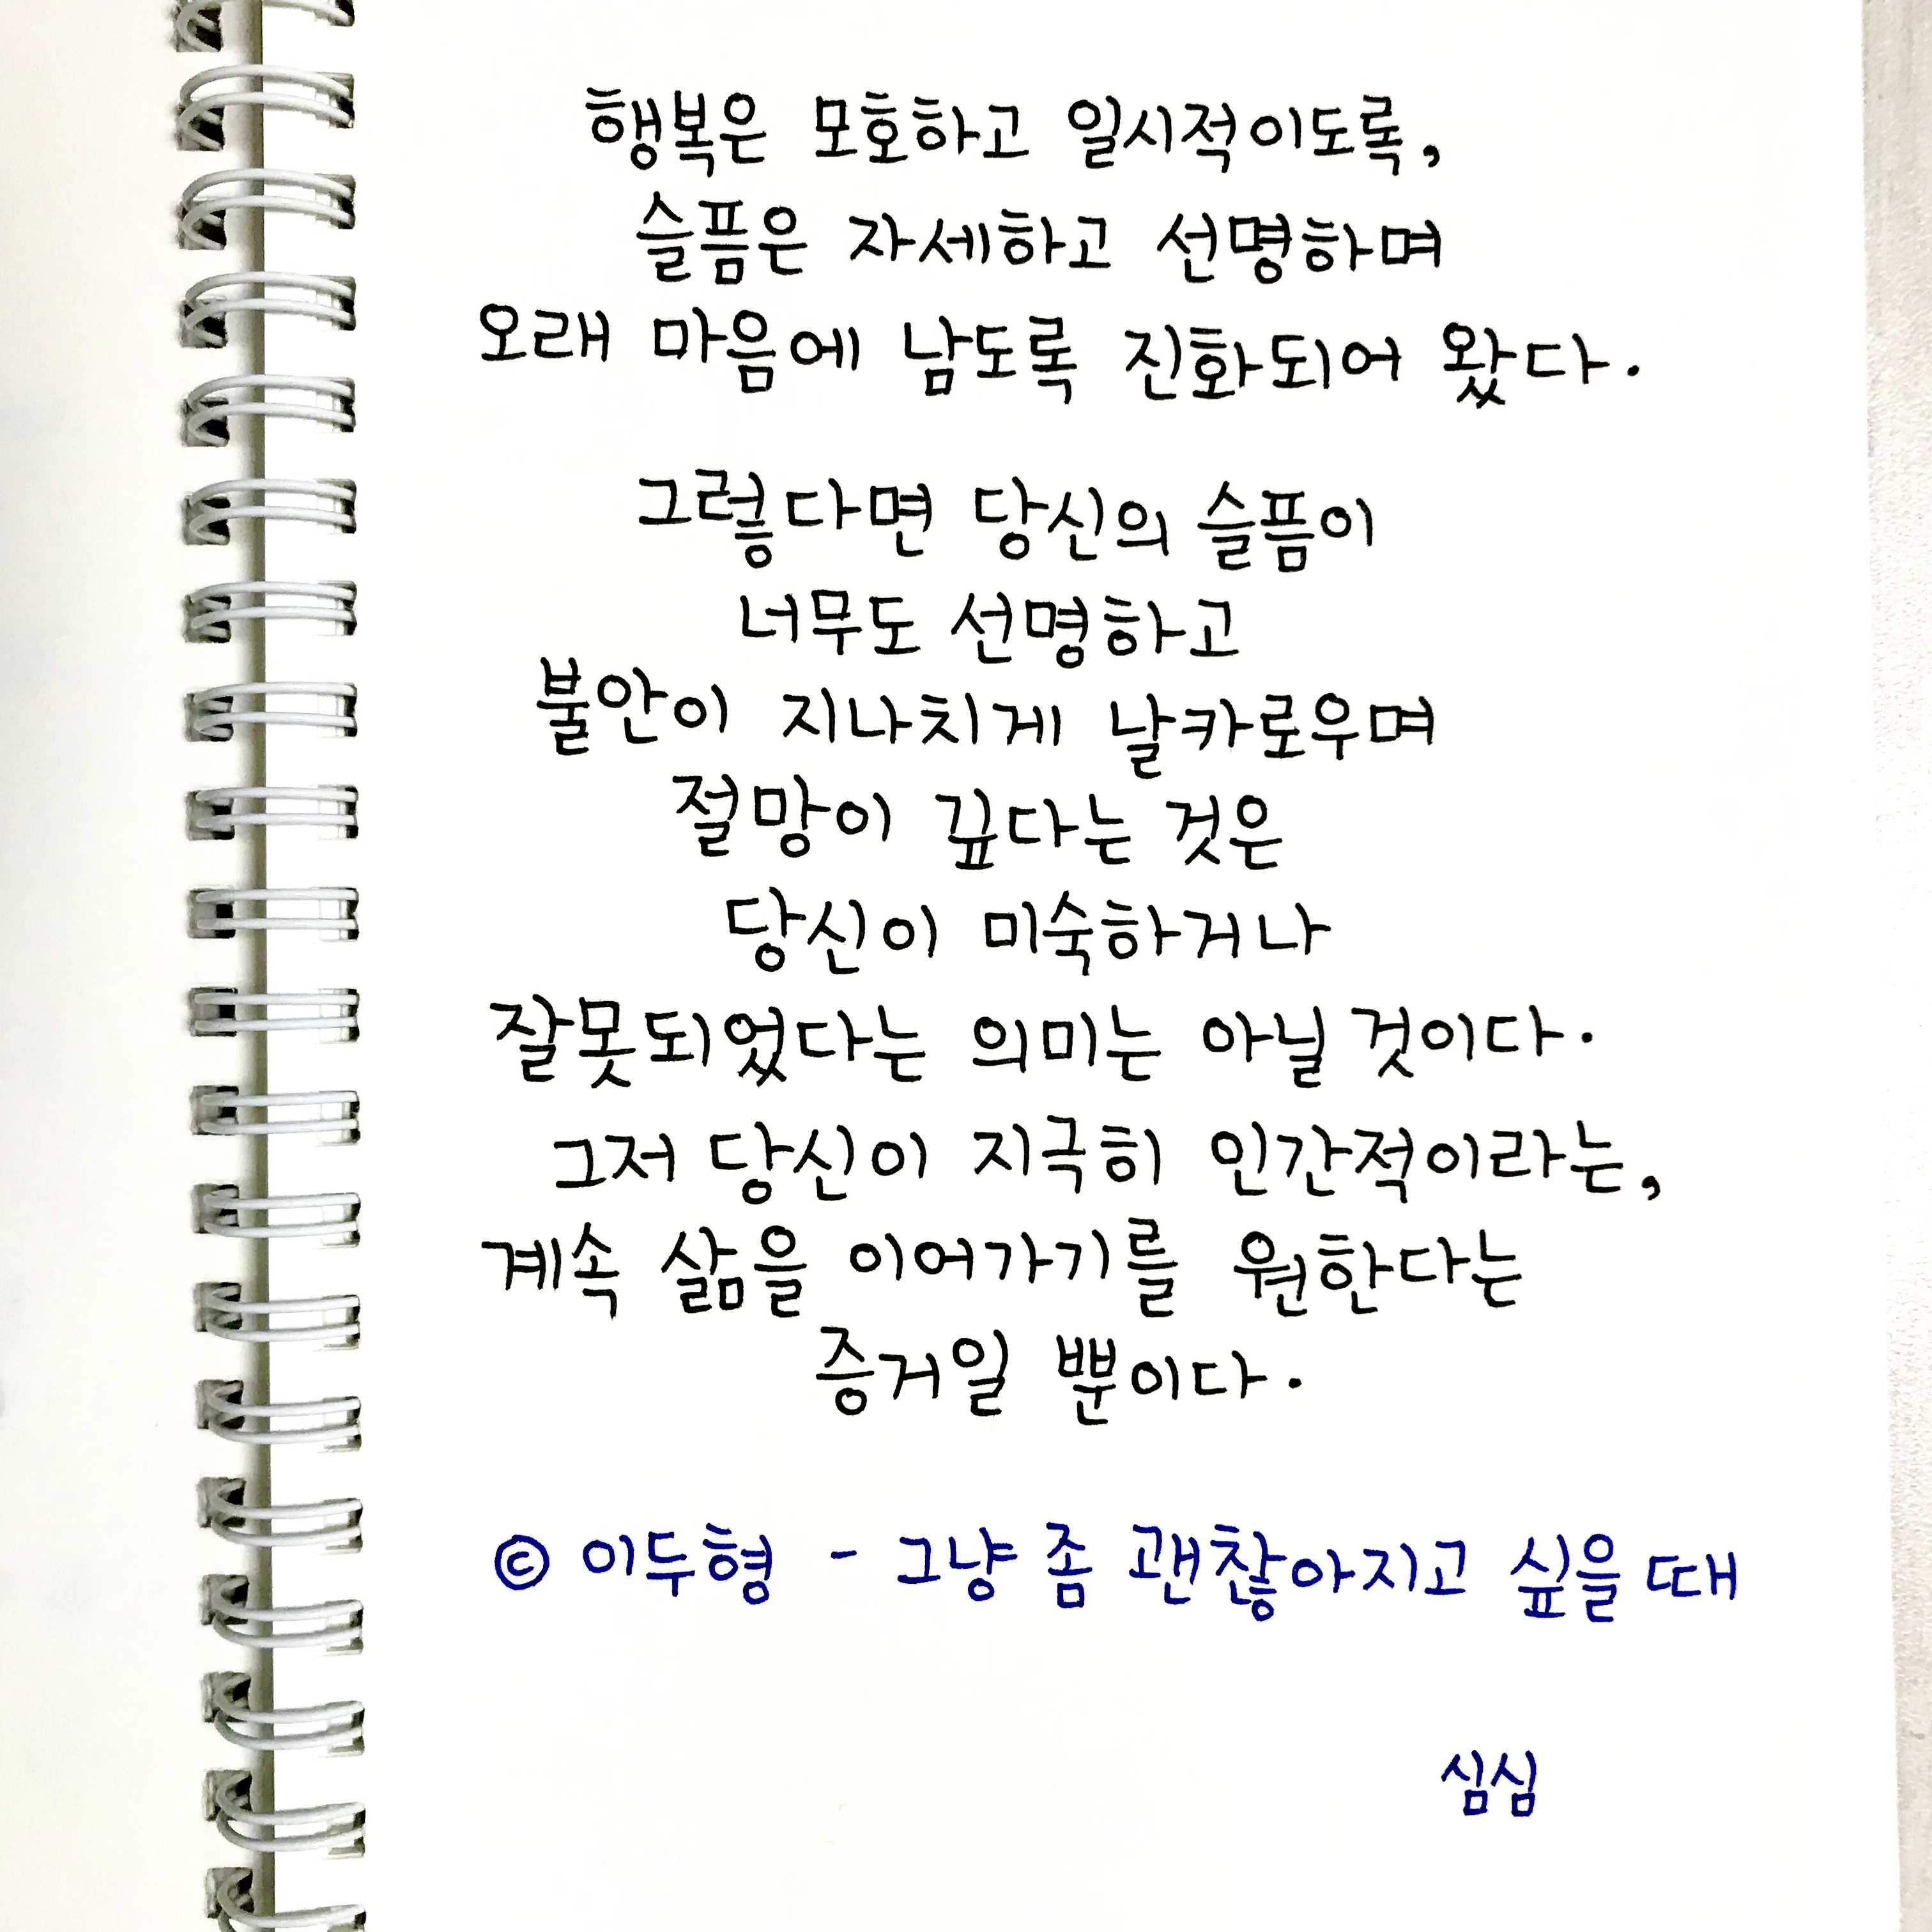 행복은 모호하고 일시적이도록,
슬픔은 자세하고 선명하며
오래 마음에 남도록 진화되어 왔다.
그렇다면 당신의 슬픔이
너무도 선명하고
불안이 지나치게 날카로우며
절망이 깊다는 것은
당신이 미숙하거나
잘못되었다는 의미는 아닐 것이다.
그저 당신이 지극히 인간적이라는,
계속 삶을 이어가기를 원한다는
증거일 뿐이다.
© 이두형 - 그냥 좀 괜찮아지고 싶을 때
심심